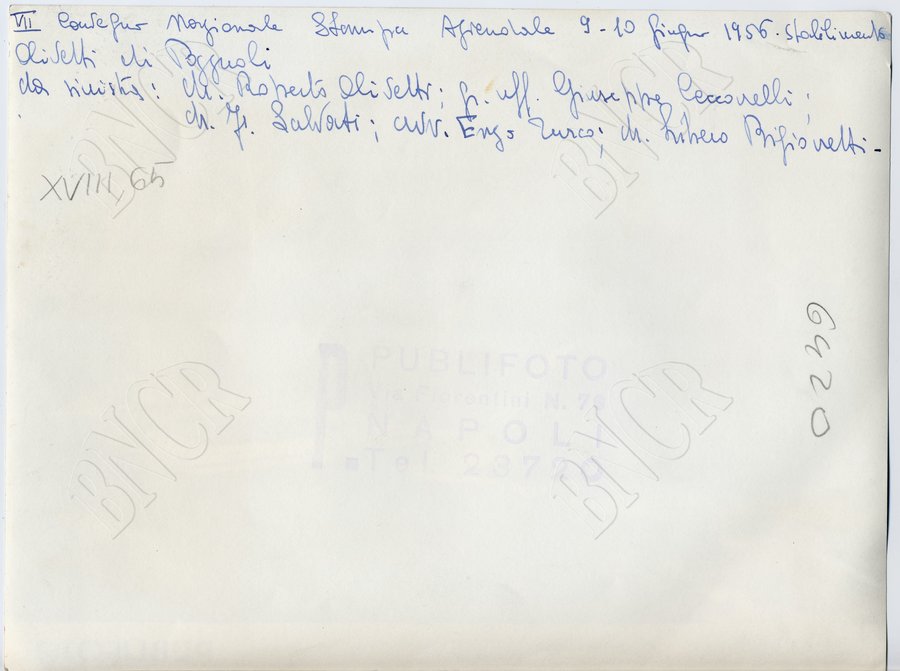 VII Convegno Nazionale Stampa Aziendale 9-10 Giugno 1956. stabilimento
Olivetti di Pozzuoli
da sinistra: dr. Roberto Olivetti; gr. uff. Giuseppe Ceccarelli;
dr. Salvati; avv. Enzo Turco; dr. Libero Bigiaretti-
XVIII, 65
0239
PUBLIFOTO
Via Fiorentini N. 76
NAPOLI
Tel 23720
BNCR
BNCR
BNCR
BNCR